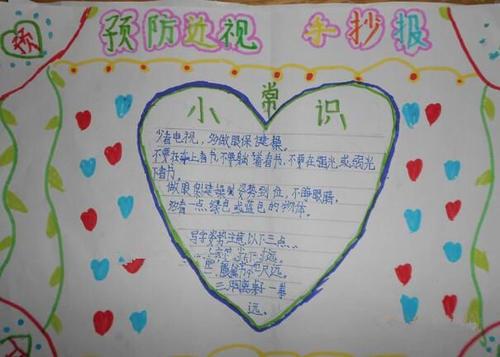 预
预防近视 手抄报
小常识
少看电视，多做眼保健操。
不要在车上看书，不要躺着看书，不要在强光或弱光
下看书。
做眼保健操姿势到位，不睁眼睛，
多看一点绿色或蓝色的物体。
写字姿势注意以下三点
一寸远。
二、眼离书一尺远。
三、胸离桌子一拳
远。